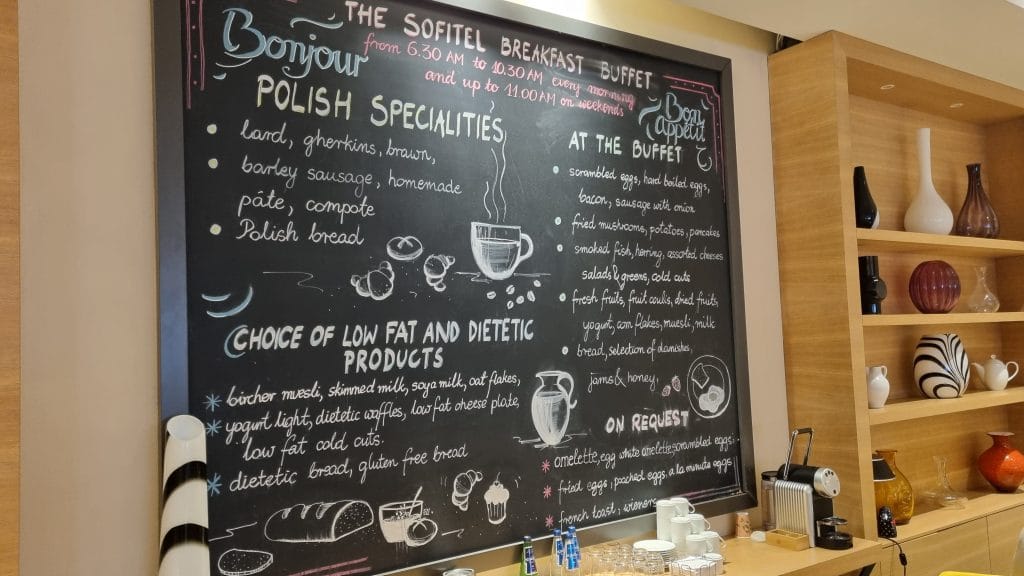 Bonjour
THE SOFITEL BREAKFAST BUFFET
from 6.30 AM to 10.30 AM every morning
and up to 11.00 AM on weekends
Bon
appetit
POLISH SPECIALITIES
lard, gherkins, brawn,
barley sausage, homemade
pâte, compote
Polish bread
CHOICE OF LOW FAT AND DIETETIC
PRODUCTS
bircher muesli, skimned milk, soya milk, oat flakes,
yogurt light, dietetic waffles, low fat cheese plate,
low fat cold cuts.
dietetic bread, gluten free bread
AT THE BUFFET
scrambled eggs, hard boiled eggs,
bacon, sausage with onion
fried musrooms, potatoes, pancakes
smoked fish, herring, assorted cheeses
salads & greens, cold cuts
fresh fruits, fruit coulis, dried fruits,
yogurt, corn flakes, muesli, milk
bread, selection of danishes,
jams & honey,
ON REQUEST
omelette, egg white omelette, scrambled eggs,
fried eggs, poached eggs, a la minuta eggs,
french toast, wieners